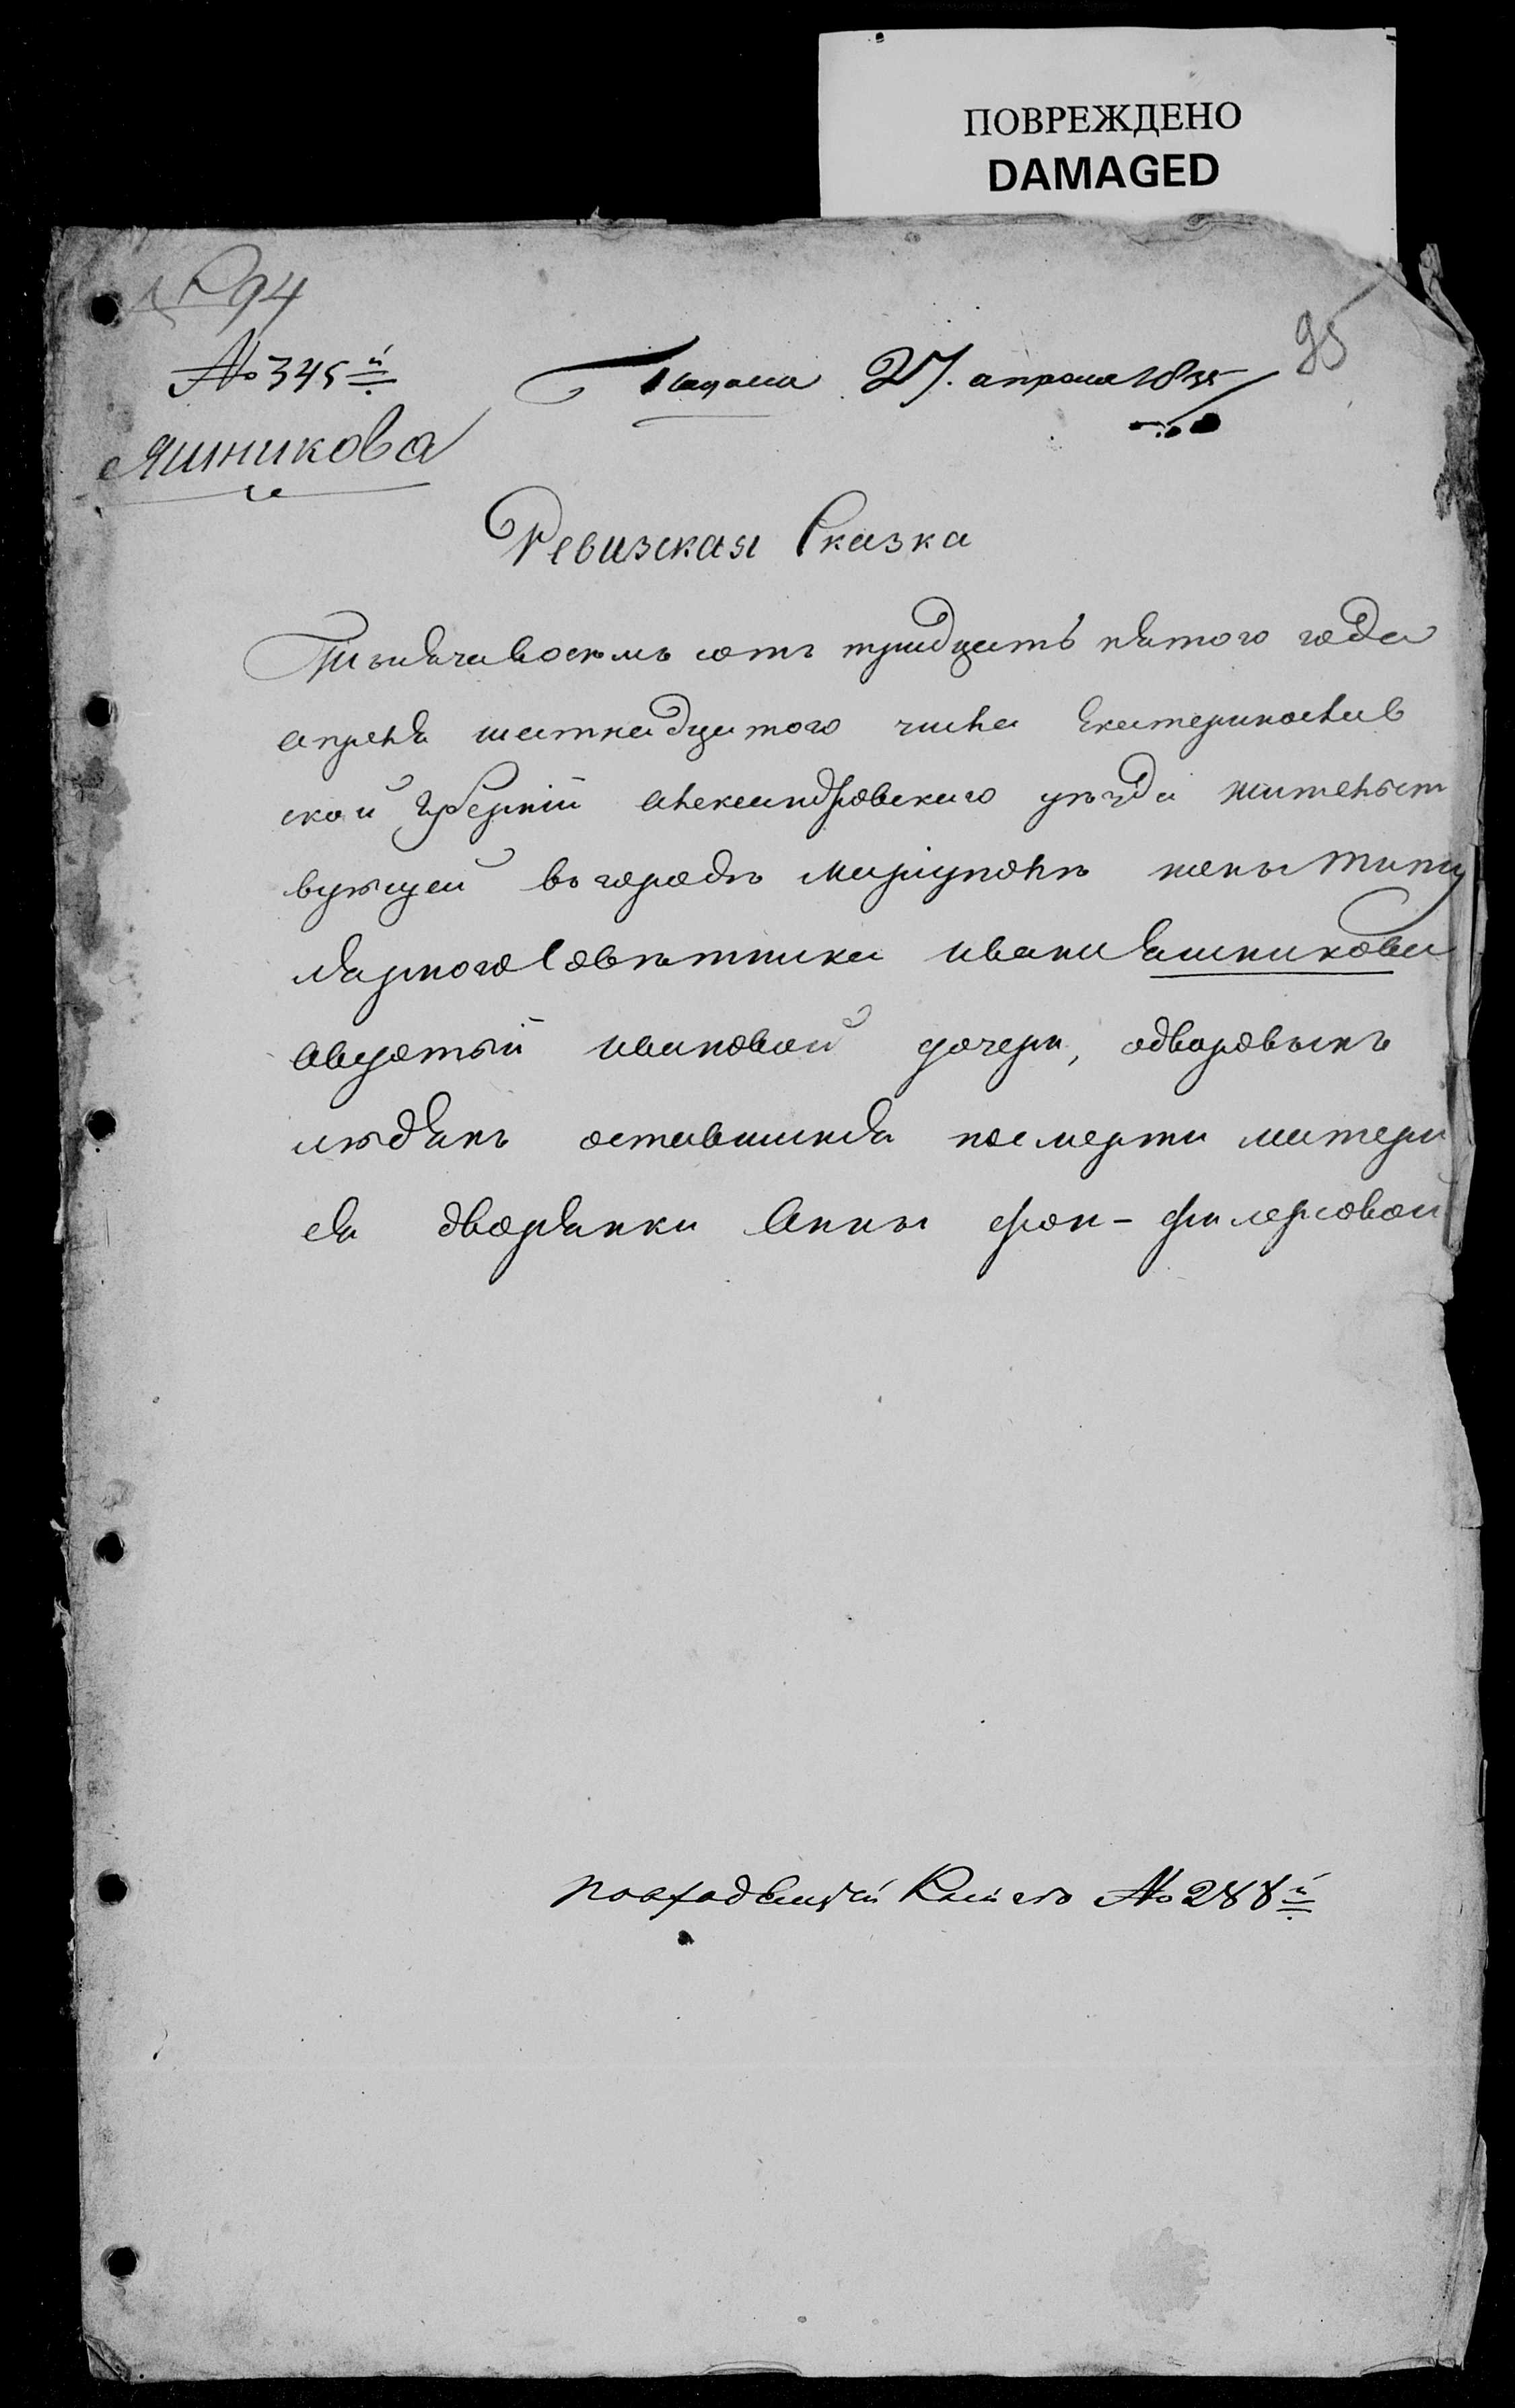 ПОВРЕЖДЕНО
DAMAGED
№ 94
95
№ 345й
Яшникова
Подана 27. апреля 1835
Ревизская Сказка
Тысяча восемь сотъ тридцать пятого года
апреля шестнадцатого числа Екатеринослав
ской Губернiи Александровскаго уѣзда жительст
вующей въ городѣ Марiуполѣ жены титу
лярного Совѣтника Ивана Яшникова
Авдотьи Ивановой дочери, о дворовыхъ
людяхъ оставшихся посмерти матери
ея дворянки Анны фон-
№ 288й